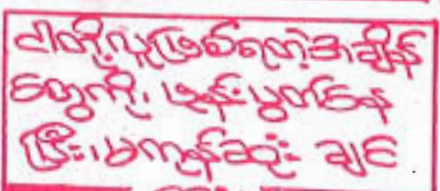 ငါတို့လူဖြစ်ရတဲ့အချိန်
တွေကို၊ ဖုန်းပွတ်နေ
ပြီး၊မကုန်ဆုံး ချင်